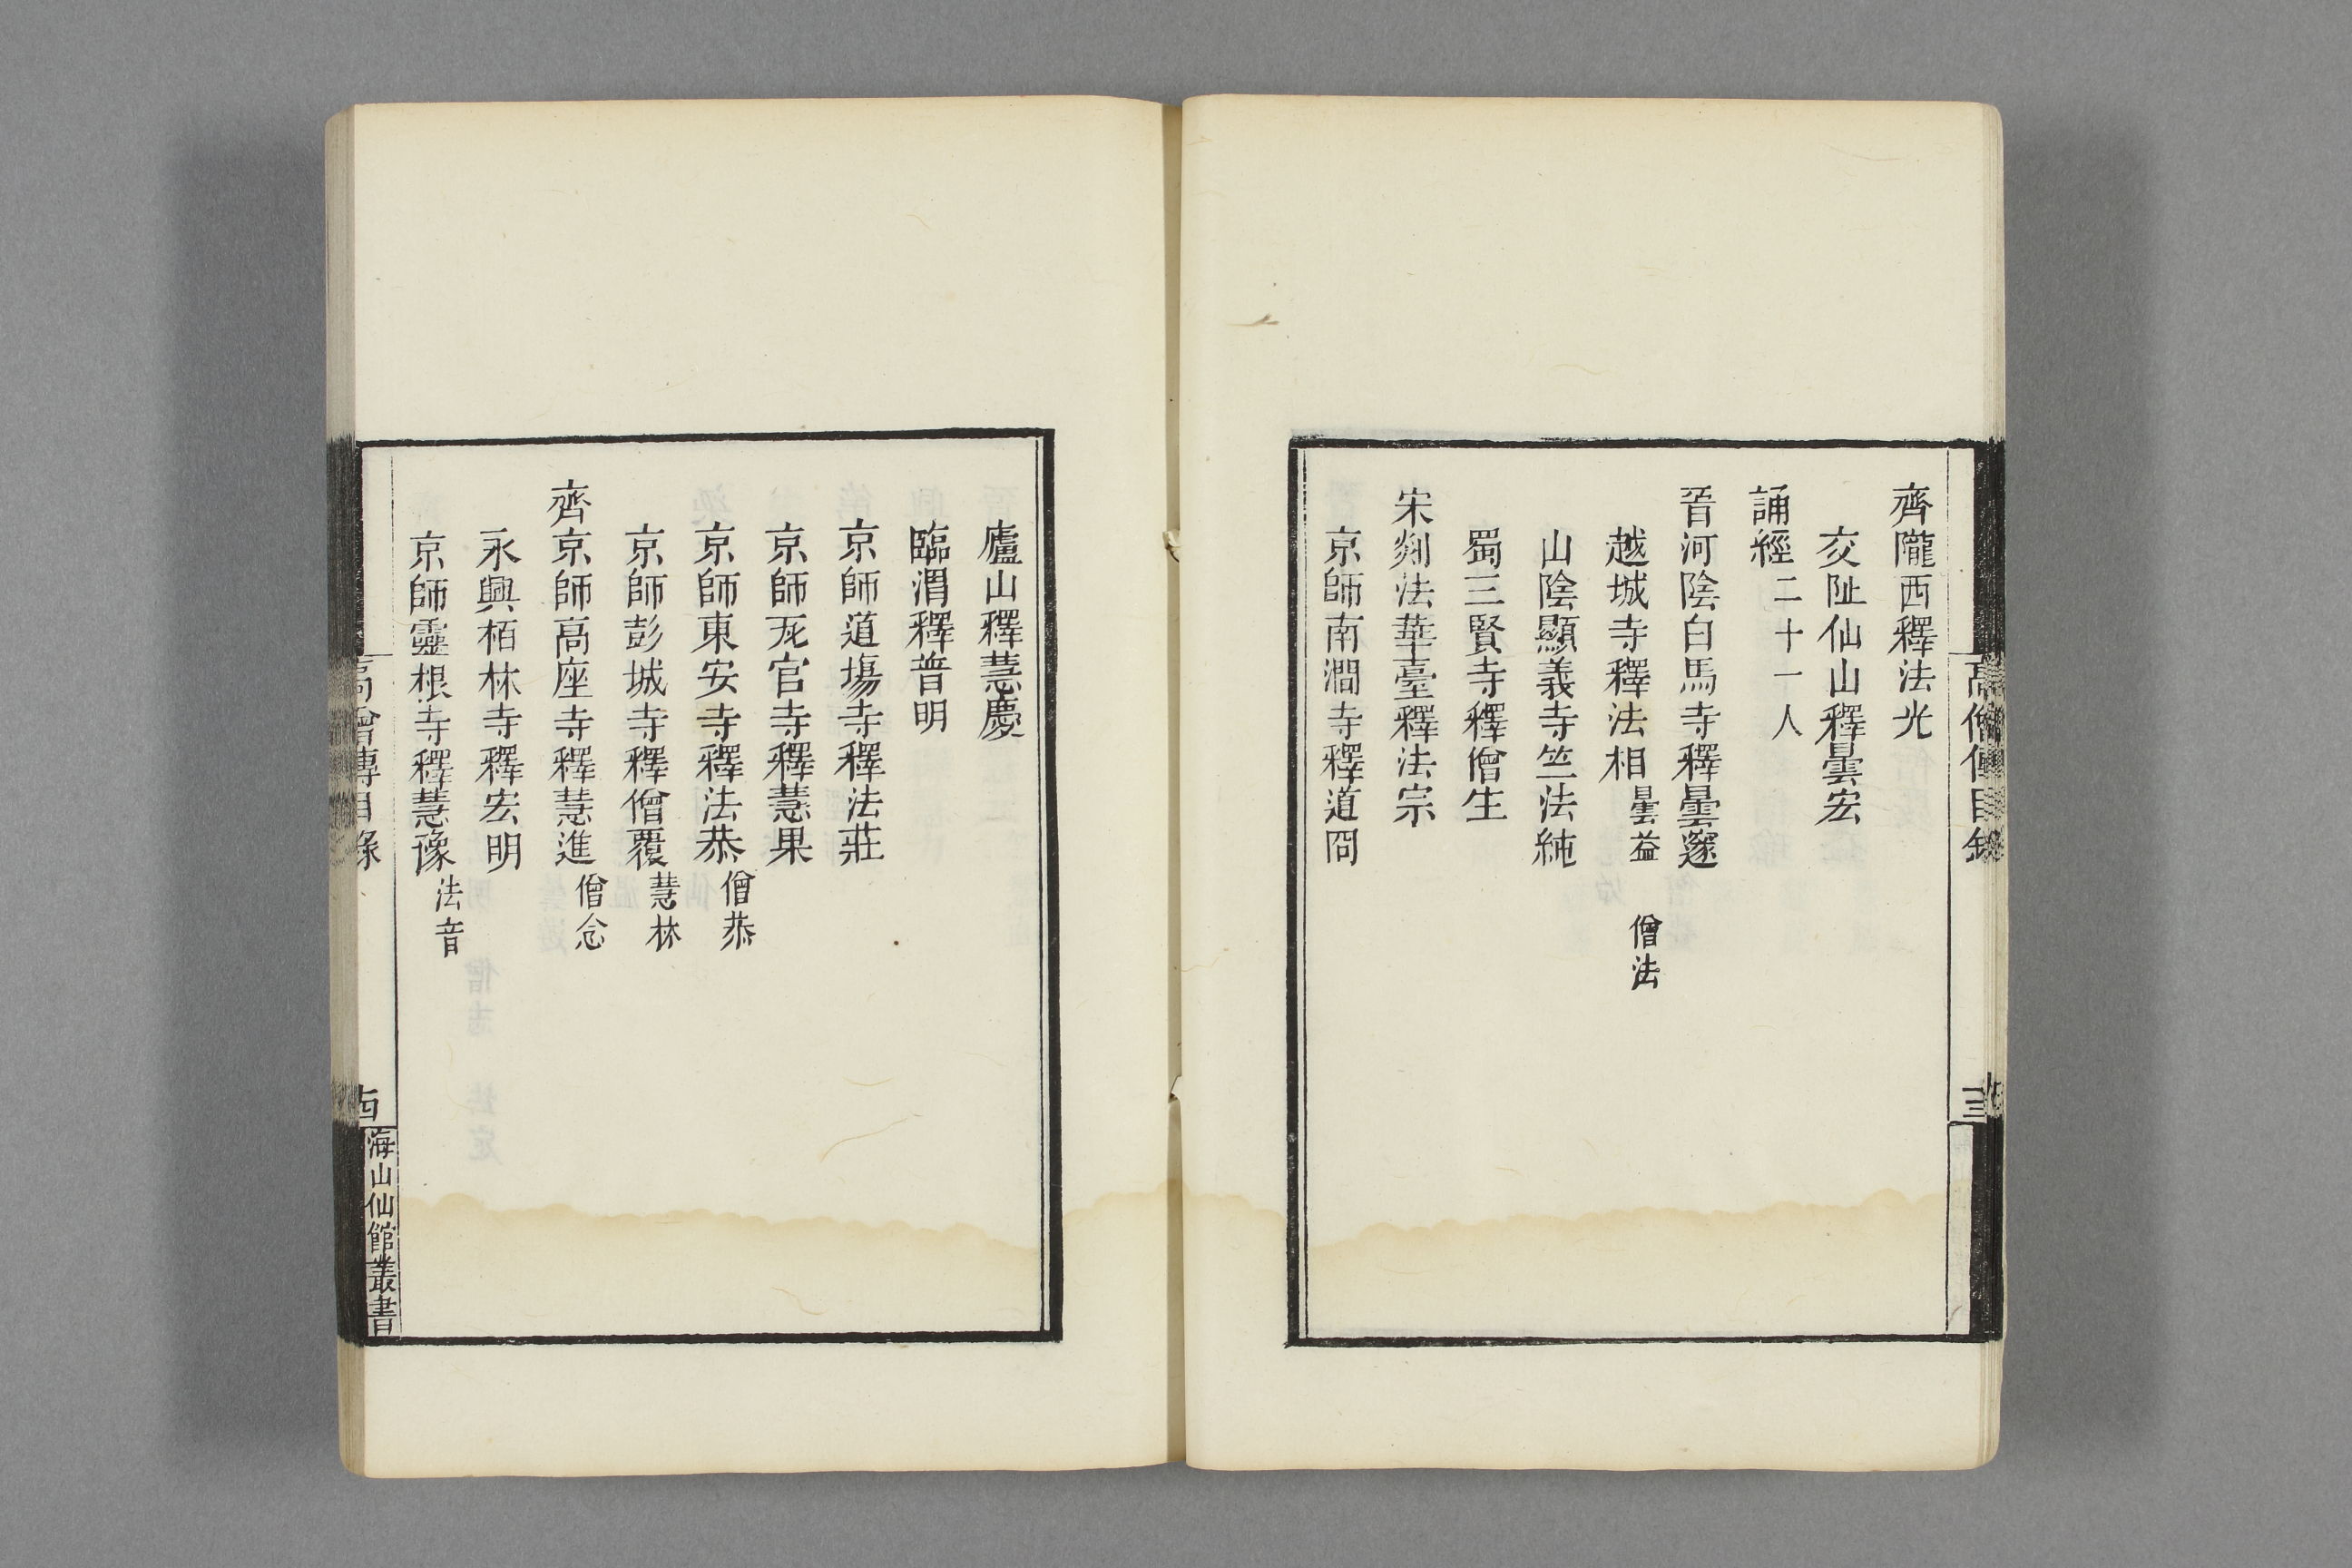 齊隴西釋法光
交阯仙山釋曇宏
誦經二十一人
晉河陰白馬寺釋曇邃
越城寺釋法相 曇益 僧法
山陰顯義寺竺法純
蜀三賢寺釋僧生
宋剡法華臺釋法宗
京師南澗寺釋道冏
廬山釋慧慶
臨渭釋普明
京師道塲寺釋法莊
京師瓦官寺釋慧果
京師東安寺釋法恭 僧恭
京師彭城寺釋僧覆 慧林
齊京師高座寺釋慧進 僧念
永興栢林寺釋宏明
京師靈根寺釋慧豫 法音
高僧傳目錄
海山仙館叢書